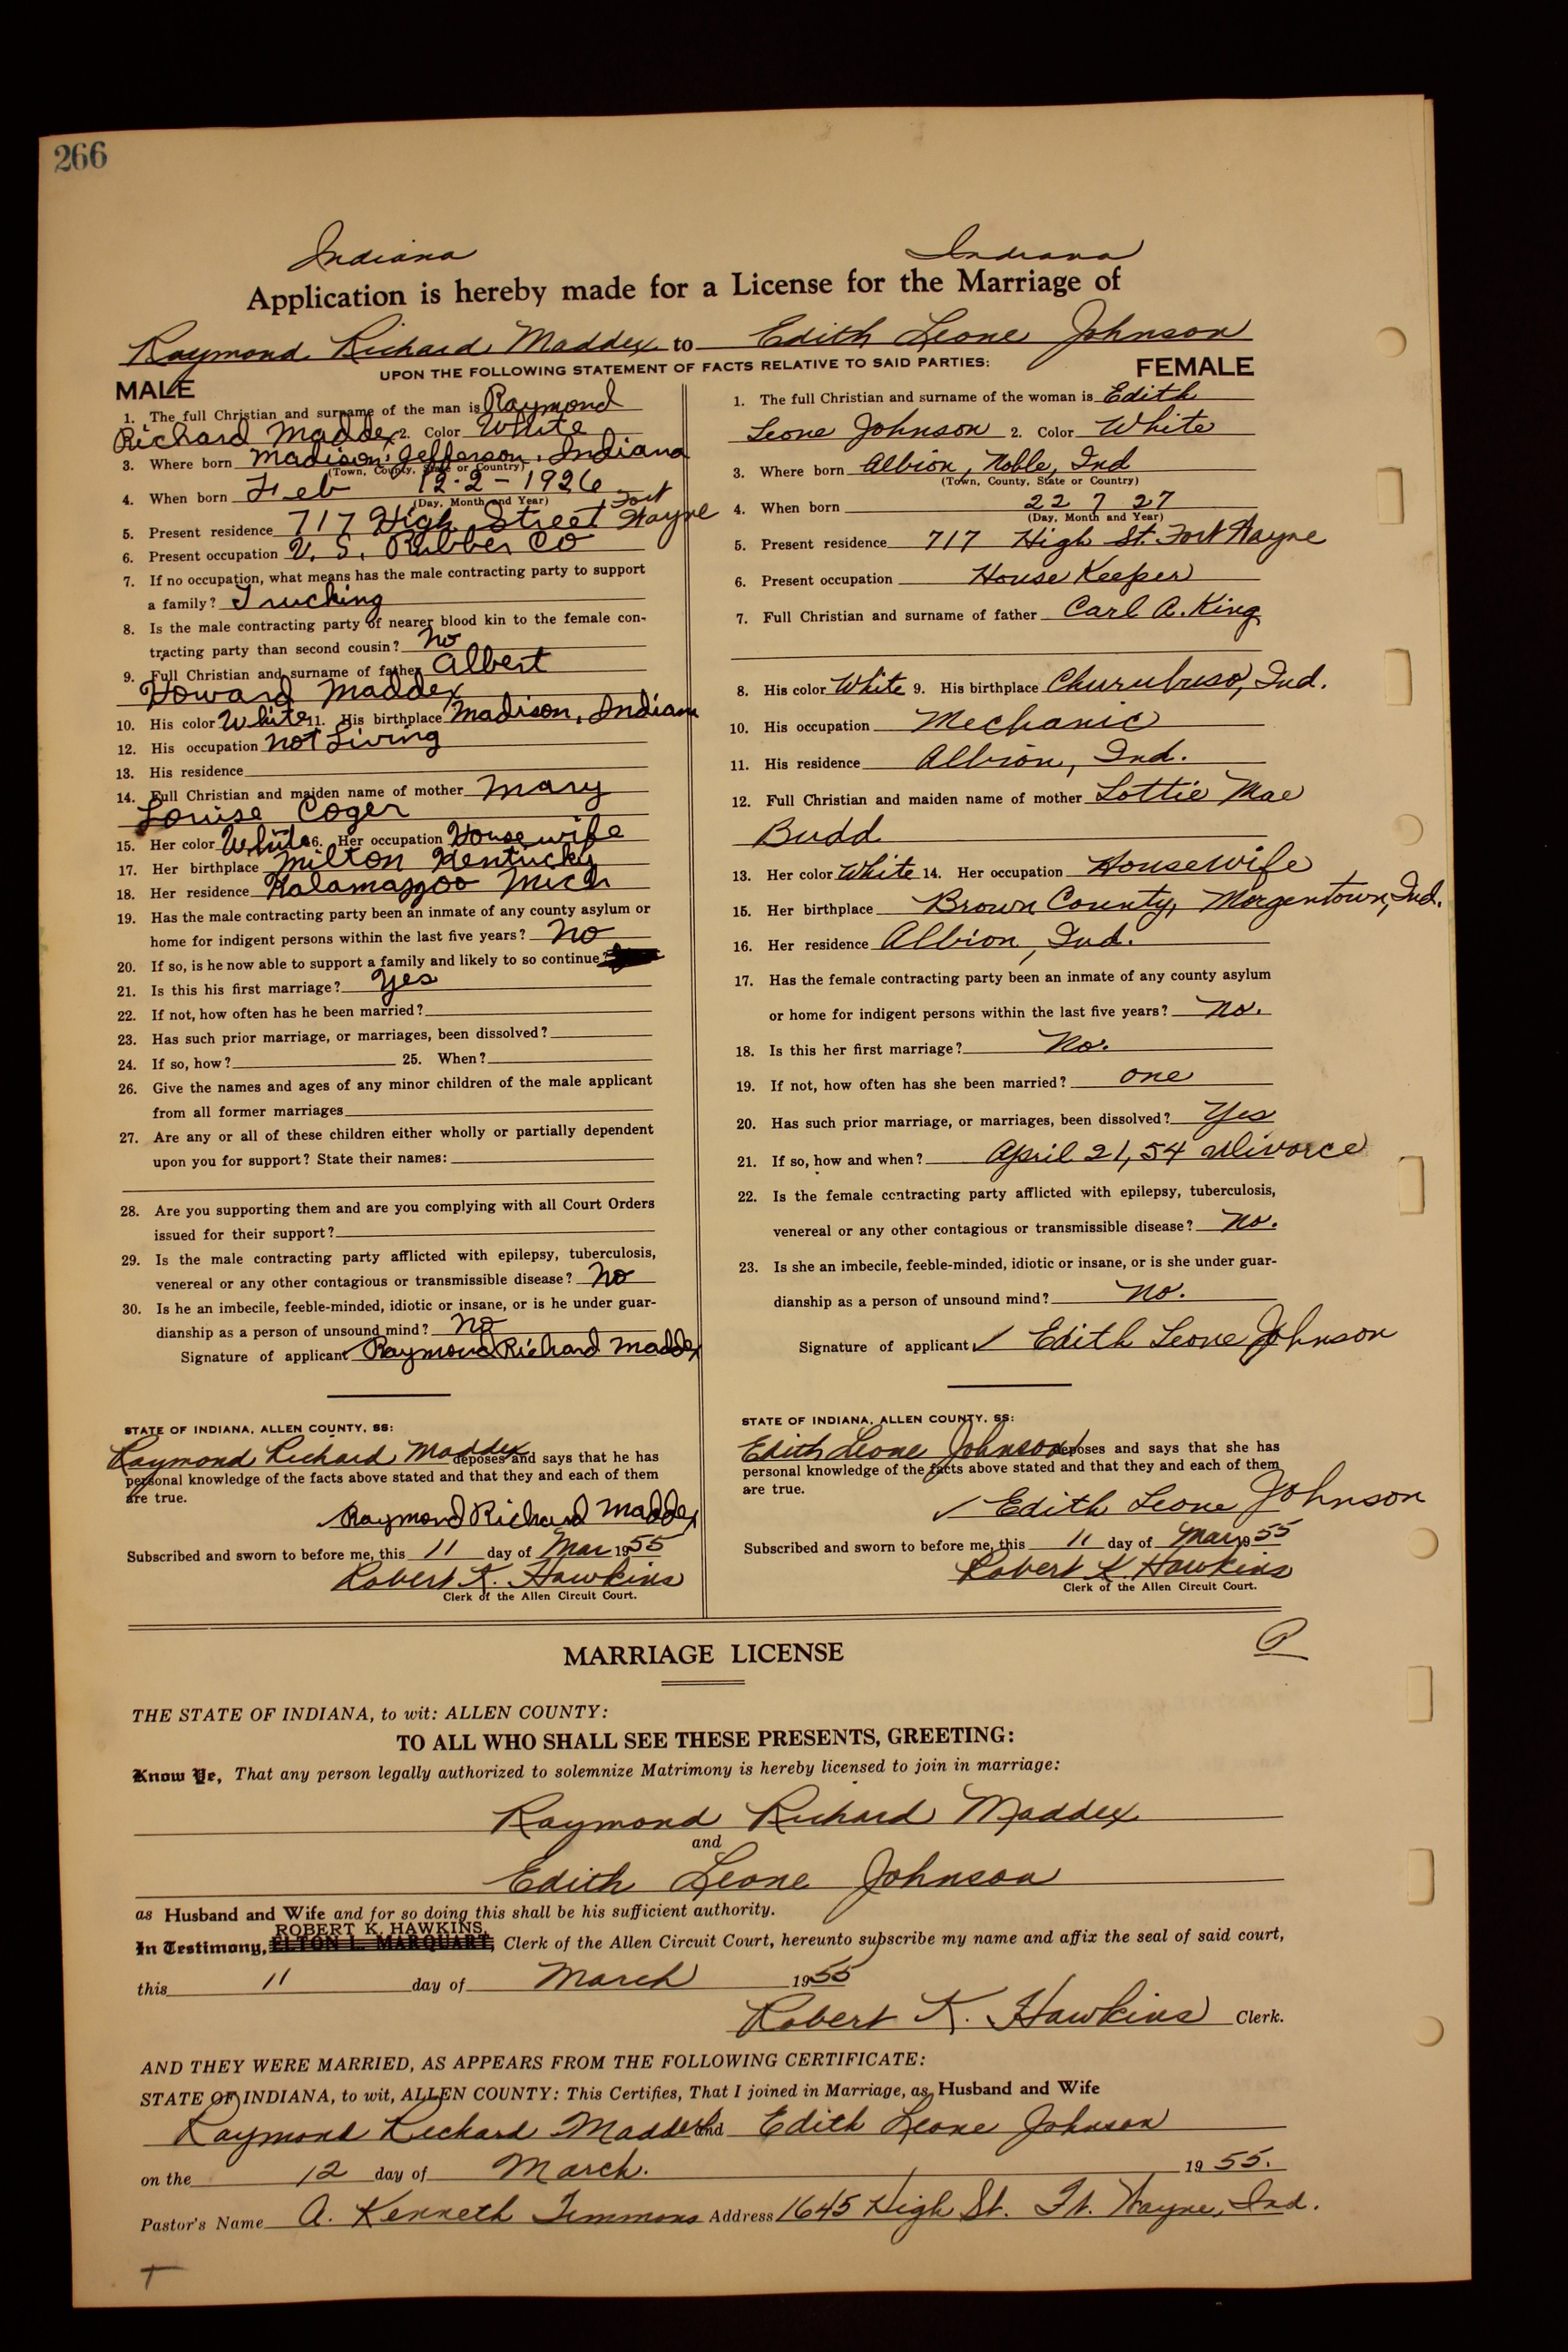 266
Indiana Indiana
Application is hereby made for a License for the Marriage of
Raymond Richard Maddex to Edith Leone Johnson
UPON THE FOLLOWING STATEMENT OF FACTS RELATIVE TO SAID PARTIES:
MALE
1. The full Christian and surname of the man is Raymond
Richard Maddex 2. Color White
3. Where born Madison, Jefferson, Indiana
(Town, County, State or Country)
4. When born Feb 12-2-1926
(Day, Month and Year)
5. Present residence 717 High Street Fort Wayne
6. Present occupation U. S. Rubber Co
7. If no occupation, what means has the male contracting party to support
a family? Trucking
8. Is the male contracting party of nearer blood kin to the female con-
tracting party than second cousin? No
9. Full Christian and surname of father Albert
Howard Maddex
10. His color White 11. His birthplace Madison, Indiana
12. His occupation not Living
13. His residence
14. Full Christian and maiden name of mother Mary
Louise Coger
15. Her color White 16. Her occupation House wife
17. Her birthplace Milton Kentucky
18. Her residence Kalamazoo Mich
19. Has the male contracting party been an inmate of any county asylum or
home for indigent persons within the last five years? No
20. If so, is he now able to support a family and likely to so continue?
21. Is this his first marriage? Yes
22. If not, how often has he been married?
23. Has such prior marriage, or marriages, been dissolved?
24. If so, how? 25. When?
26. Give the names and ages of any minor children of the male applicant
from all former marriages
27. Are any or all of these children either wholly or partially dependent
upon you for support? State their names:
28. Are you supporting them and are you complying with all Court Orders
issued for their support?
29. Is the male contracting party afflicted with epilepsy, tuberculosis,
venereal or any other contagious or transmissible disease? No
30. Is he an imbecile, feeble-minded, idiotic or insane, or is he under guar-
dianship as a person of unsound mind? No
Signature of applicant Raymond Richard Maddex
STATE OF INDIANA, ALLEN COUNTY, SS:
Raymond Richard Maddex deposes and says that he has
personal knowledge of the facts above stated and that they and each of them
are true.
Raymond Richard Maddex
Subscribed and sworn to before me, this 11 day of Mar 1955
Robert K. Hawkins
Clerk of the Allen Circuit Court.
FEMALE
1. The full Christian and surname of the woman is Edith
Leone Johnson 2. Color White
3. Where born Albion, Noble, Ind
(Town, County, State or Country)
4. When born 22 7 27
(Day, Month and Year)
5. Present residence 717 High St. Fort Wayne
6. Present occupation House Keeper
7. Full Christian and surname of father Carl A. King
8. His color White 9. His birthplace Churubuso, Ind.
10. His occupation Mechanic
11. His residence Albion, Ind.
12. Full Christian and maiden name of mother Lottie Mae
Budd
13. Her color White 14. Her occupation Housewife
15. Her birthplace Brown County, Morgentown, Ind.
16. Her residence Albion, Ind.
17. Has the female contracting party been an inmate of any county asylum
or home for indigent persons within the last five years? No.
18. Is this her first marriage? No.
19. If not, how often has she been married? one
20. Has such prior marriage, or marriages, been dissolved? Yes
21. If so, how and when? April 21, 54 Divorce
22. Is the female contracting party afflicted with epilepsy, tuberculosis,
venereal or any other contagious or transmissible disease? No.
23. Is she an imbecile, feeble-minded, idiotic or insane, or is she under guar-
dianship as a person of unsound mind? No.
Signature of applicant ✓ Edith Leone Johnson
STATE OF INDIANA, ALLEN COUNTY, SS:
Edith Leone Johnson deposes and says that she has
personal knowledge of the facts above stated and that they and each of them
are true.
✓ Edith Leone Johnson
Subscribed and sworn to before me, this 11 day of Mar 1955
Robert K. Hawkins
Clerk of the Allen Circuit Court.
MARRIAGE LICENSE
THE STATE OF INDIANA, to wit: ALLEN COUNTY:
TO ALL WHO SHALL SEE THESE PRESENTS, GREETING:
Know Ye, That any person legally authorized to solemnize Matrimony is hereby licensed to join in marriage:
Raymond Richard Maddex
and
Edith Leone Johnson
as Husband and Wife and for so doing this shall be his sufficient authority.
ROBERT K. HAWKINS
In Testimony, ELTON L. MARQUART, Clerk of the Allen Circuit Court, hereunto subscribe my name and affix the seal of said court,
this 11 day of March 1955
Robert K. Hawkins Clerk.
AND THEY WERE MARRIED, AS APPEARS FROM THE FOLLOWING CERTIFICATE:
STATE OF INDIANA, to wit, ALLEN COUNTY: This Certifies, That I joined in Marriage, as Husband and Wife
Raymond Richard Maddex and Edith Leone Johnson
on the 12 day of March. 1955.
Pastor's Name A. Kenneth Timmons Address 1645 High St. Ft. Wayne, Ind.